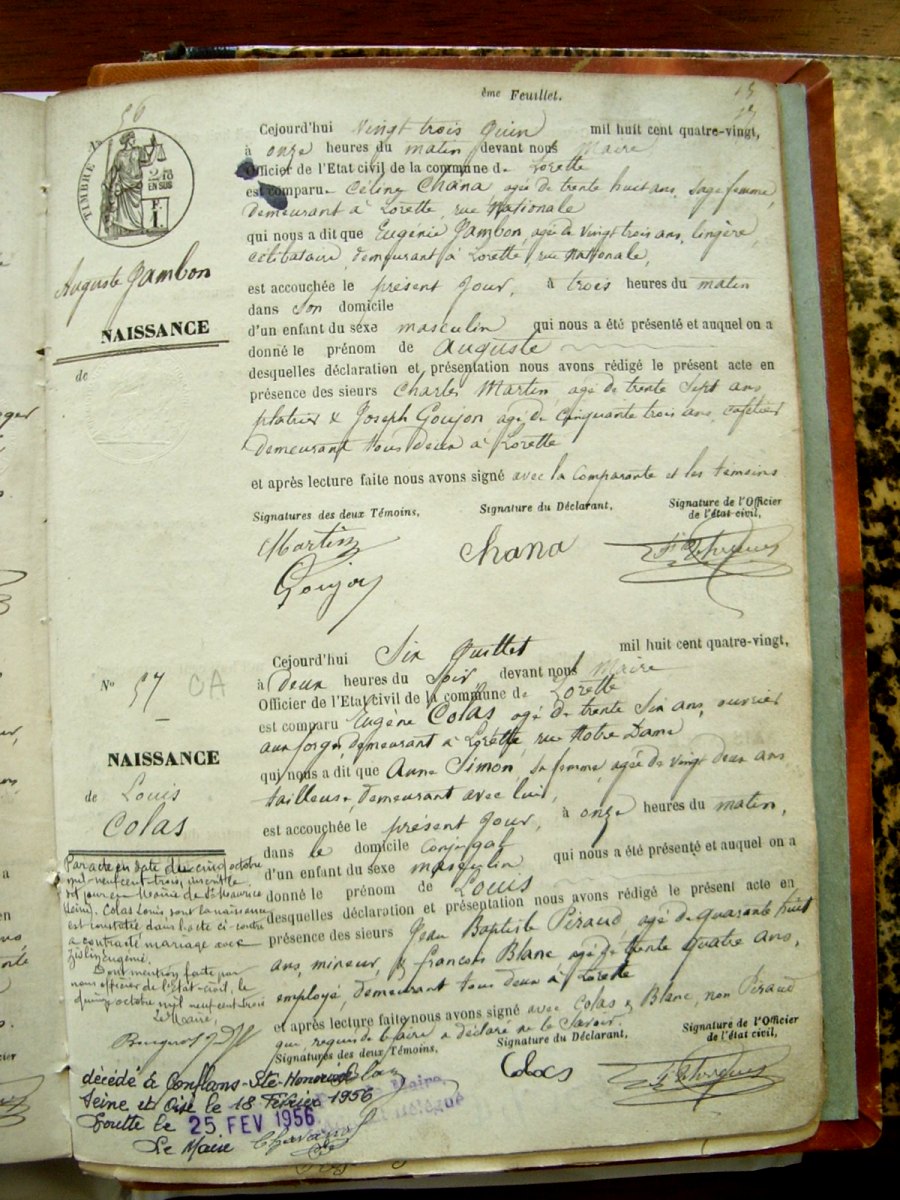 ème Feuillet.
15
TIMBRE
2/10
EN SUS
56
Cejourd'hui vingt trois Juin mil huit cent quatre-vingt,
à onze heures du matin devant nous Maire
Officier de l'Etat civil de la commune de Lorette
est comparu Céline Chana agée de trente huit ans, sage femme,
demeurant à Lorette, rue Nationale
qui nous a dit que Eugénie Jambon, agée de vingt trois ans, lingère,
célibataire, demeurant à Lorette, rue Nationale,
est accouchée le présent Jour, à trois heures du matin
dans son domicile
d'un enfant du sexe masculin qui nous a été présenté et auquel on a
donné le prénom de Auguste
desquelles déclaration et présentation nous avons rédigé le présent acte en
présence des sieurs Charles Martin agé de trente sept ans
platrier & Joseph Goujon agé de cinquante trois ans, cafetier
demeurant tous deux à Lorette
et après lecture faite nous avons signé avec la Comparante et les témoins
Auguste Jambon
NAISSANCE
de
Signatures des deux Témoins,
Signature du Déclarant,
Signature de l'Officier
de l'état-civil,
Martin
Goujon
Chana
Cejourd'hui Six Juillet mil huit cent quatre-vingt,
à Deux heures du Soir devant nous Maire
Officier de l'Etat civil de la commune de Lorette
est comparu Eugène Colas agé de trente six ans, ouvrier
aux forges, demeurant à Lorette, rue Notre Dame
qui nous a dit que Anne Simon, sa femme, agée de vingt deux ans
tailleuse, demeurant avec lui,
est accouchée le présent Jour, à onze heures du matin,
dans le domicile conjugal
d'un enfant du sexe masculin qui nous a été présenté et auquel on a
donné le prénom de Louis
desquelles déclaration et présentation nous avons rédigé le présent acte en
présence des sieurs Jean Baptiste Péraud agé de quarante huit
ans, mineur, & françois Blanc agé de trente quatre ans,
employé, demeurant tous deux à Lorette
et après lecture faite nous avons signé avec Colas & Blanc, non Péraud
qui, requis de le faire a déclaré ne le Savoir.
Signatures des deux Témoins,
Signature du Déclarant,
Signature de l'Officier
de l'état civil,
Colas
No 57 OA
NAISSANCE
de Louis
Colas
Par acte en date du cinq octobre
mil neuf cent trois, inscrit le
dit jour en Mairie de St Maurice
(Seine). Colas Louis, dont la naissance
est constatée dans l'acte ci-contre
a contracté mariage avec
Eugénie.
Dont mention faite par
nous officier de l'Etat-civil, le
octobre mil neuf cent trois
Le Maire,
décédé à Conflans-Ste-Honorine
Seine et Oise le 18 Février 1956
le 25 FEV 1956
Le Maire
Maire,
Délégué